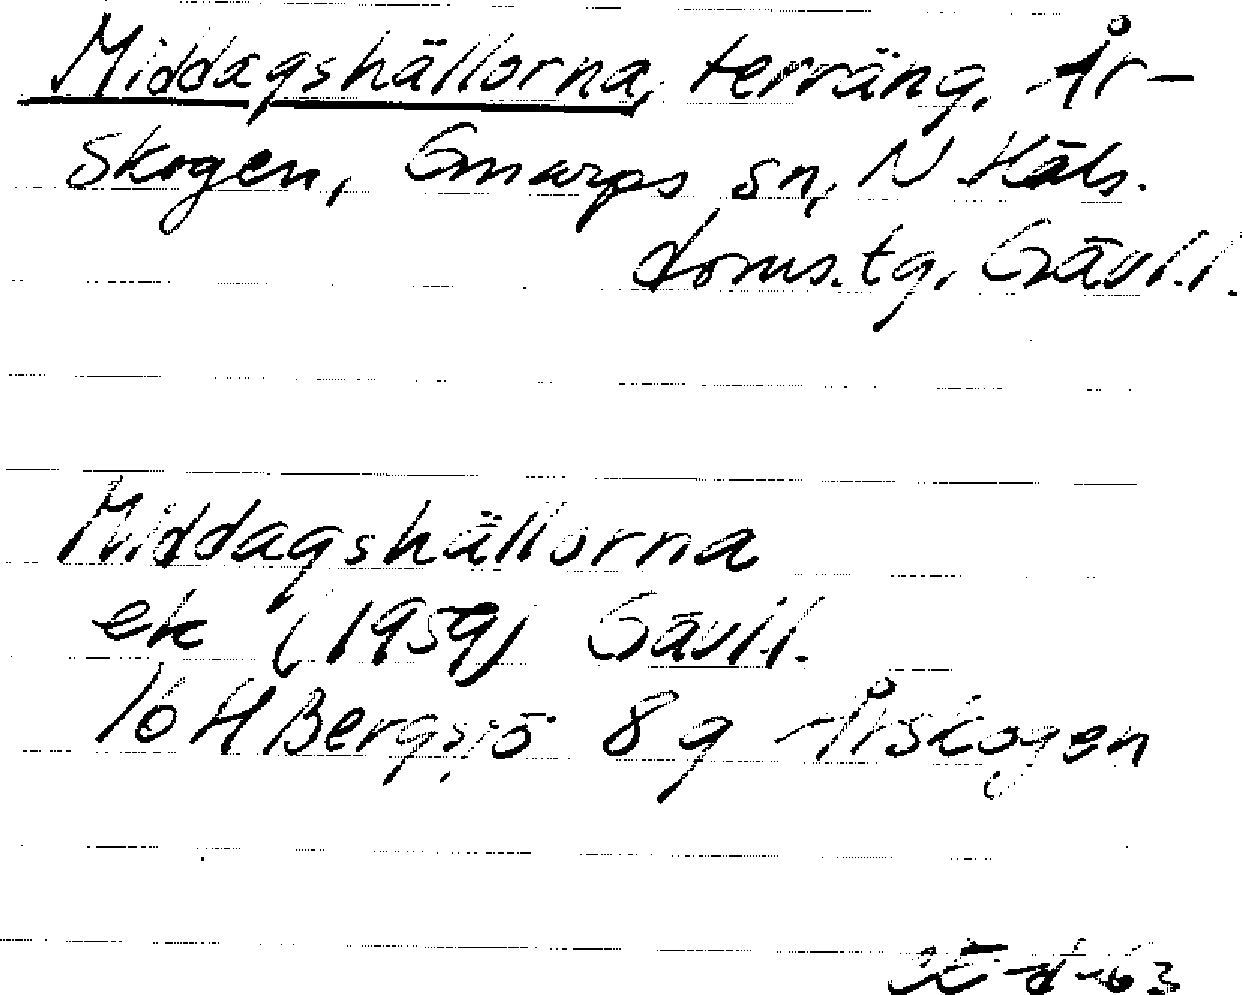 Middagshällorna, terräng, År-
skogen, Gnarps sn, N Häls.
doms.tg, Gävl.l.
Middagshällorna
ek (1959) Gävl.l.
16 H Bergsjö 8 g Årskogen